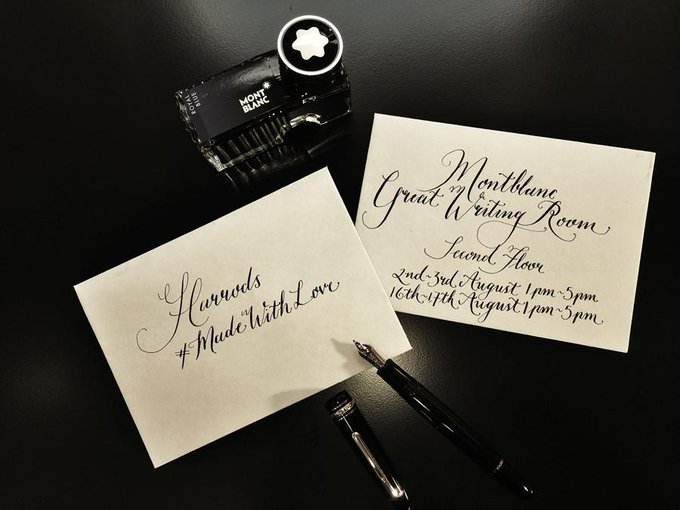 ROYAL
BLUE
MONT
BLANC
Montblanc
Great Writing Room
Second Floor
2nd~3rd August 1pm~5pm
16th~17th August 1pm~5pm
Harrods
#MadeWithLove